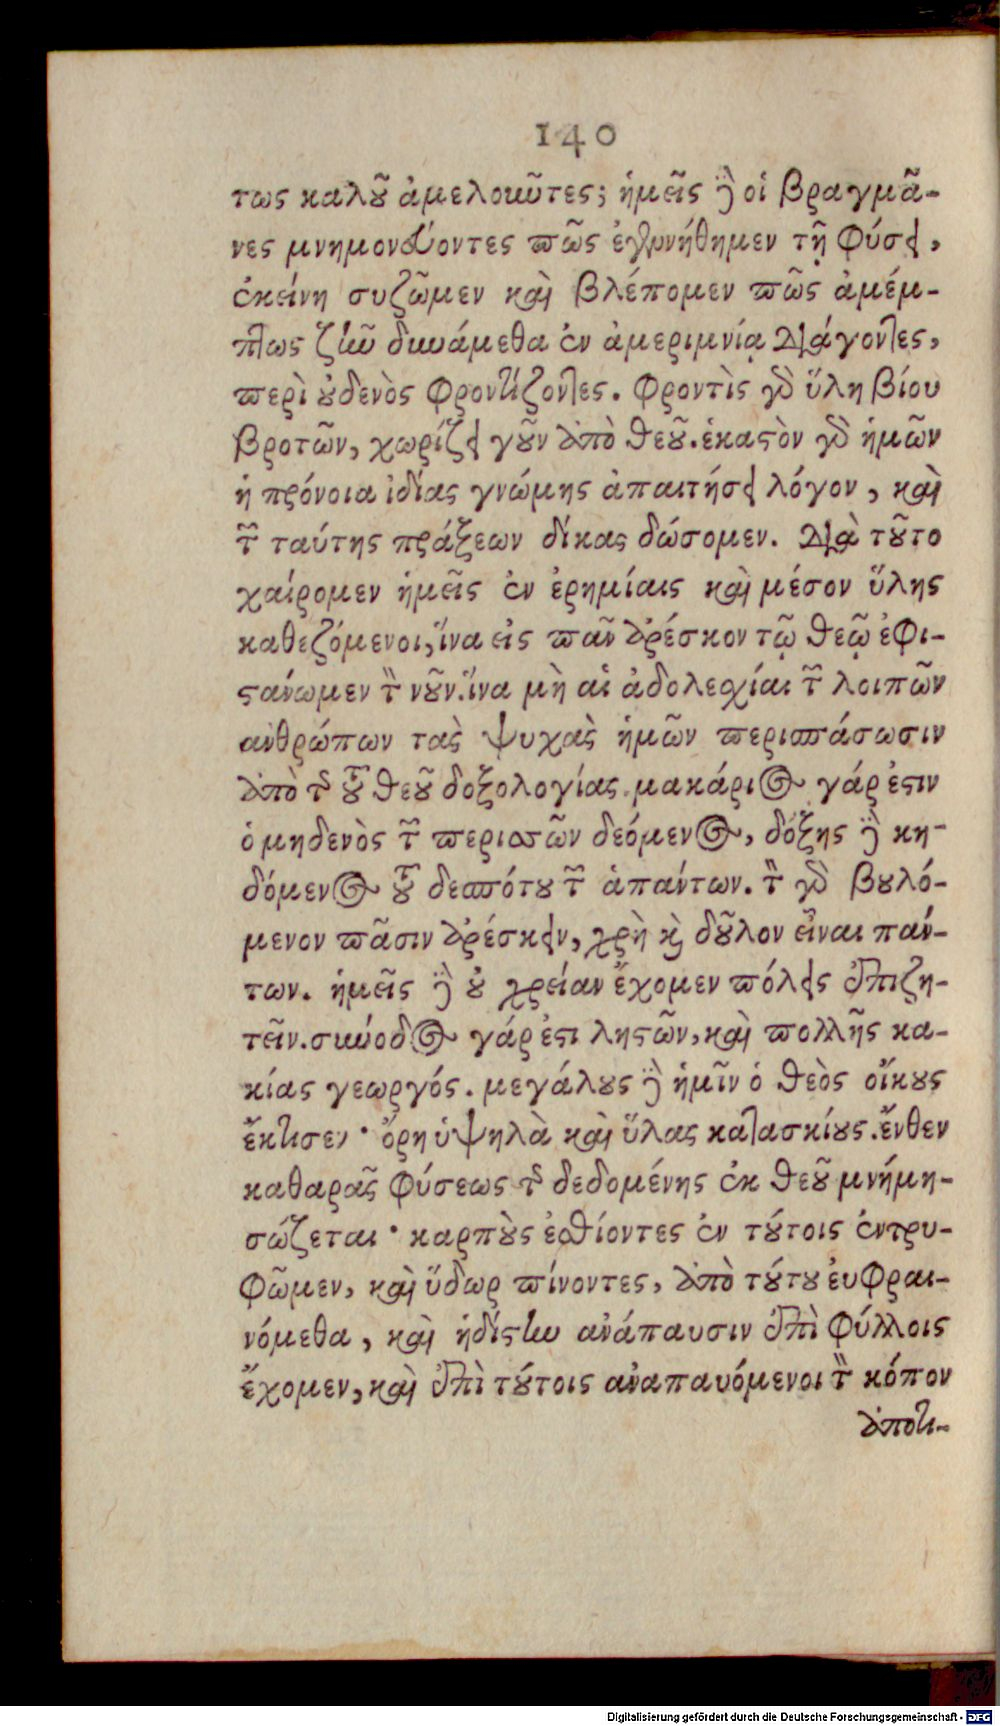 140
τως καλοῦ ἀμελοῦντες; ἡμεῖς δὲ οἱ βραγμᾶ-
νες μνημονεύοντες πῶς ἐγεννήθημεν τῇ φύσει,
ἐκείνη συζῶμεν καὶ βλέπομεν πῶς ἀμέμ-
πτως ζῆν δυνάμεθα ἐν ἀμεριμνίᾳ διάγοντες,
περὶ οὐδενὸς φροντίζοντες. φροντὶς γὰρ ὕλη βίου
βροτῶν, χωρίζει γοῦν ἀπὸ θεοῦ. ἑκαστὸν γὰρ ἡμῶν
ἡ πρόνοια ἰδίας γνώμης ἀπαιτήσει λόγον, καὶ
τῶν ταύτης πράξεων δίκας δώσομεν. διὰ τοῦτο
χαίρομεν ἡμεῖς ἐν ἐρημίαις καὶ μέσον ὕλης
καθεζόμενοι, ἵνα εἰς πᾶν ἀρέσκον τῷ θεῷ ἐφι-
στάνωμεν τὸν νοῦν. ἵνα μὴ αἱ ἀδολεχίαι τῶν λοιπῶν
ἀνθρώπων τὰς ψυχὰς ἡμῶν περισπάσωσιν
ἀπὸ τῆς τοῦ θεοῦ δοξολογίας. μακάριος γάρ ἐστιν
ὁ μηδενὸς τῶν περισσῶν δεόμενος, δόξης δὲ κη-
δόμενος τοῦ δεσπότου τῶν ἁπάντων. τὸν γὰρ βουλό-
μενον πᾶσιν ἀρέσκειν, χρὴ καὶ δοῦλον εἶναι πάν-
των. ἡμεῖς δὲ οὐ χρείαν ἔχομεν πόλεις ἐπιζη-
τεῖν. σύνοδος γάρ ἐστι λῃστῶν, καὶ πολλῆς κα-
κίας γεωργός. μεγάλους δὲ ἡμῖν ὁ θεὸς οἴκους
ἔκτισεν· ὄρη ὑψηλὰ καὶ ὕλας κατασκίους. ἔνθεν
καθαρᾶς φύσεως τῆς δεδομένης ἐκ θεοῦ μνήμη-
σώζεται· καρποὺς ἐσθίοντες ἐν τούτοις ἐντρυ-
φῶμεν, καὶ ὕδωρ πίνοντες, ἀπὸ τούτου εὐφραι-
νόμεθα, καὶ ἡδίστην ἀνάπαυσιν ἐπὶ φύλλοις
ἔχομεν, καὶ ἐπὶ τούτοις ἀναπαυόμενοι τὸν κόπον
ἀποτι-
Digitalisierung gefördert durch die Deutsche Forschungsgemeinschaft - DFG